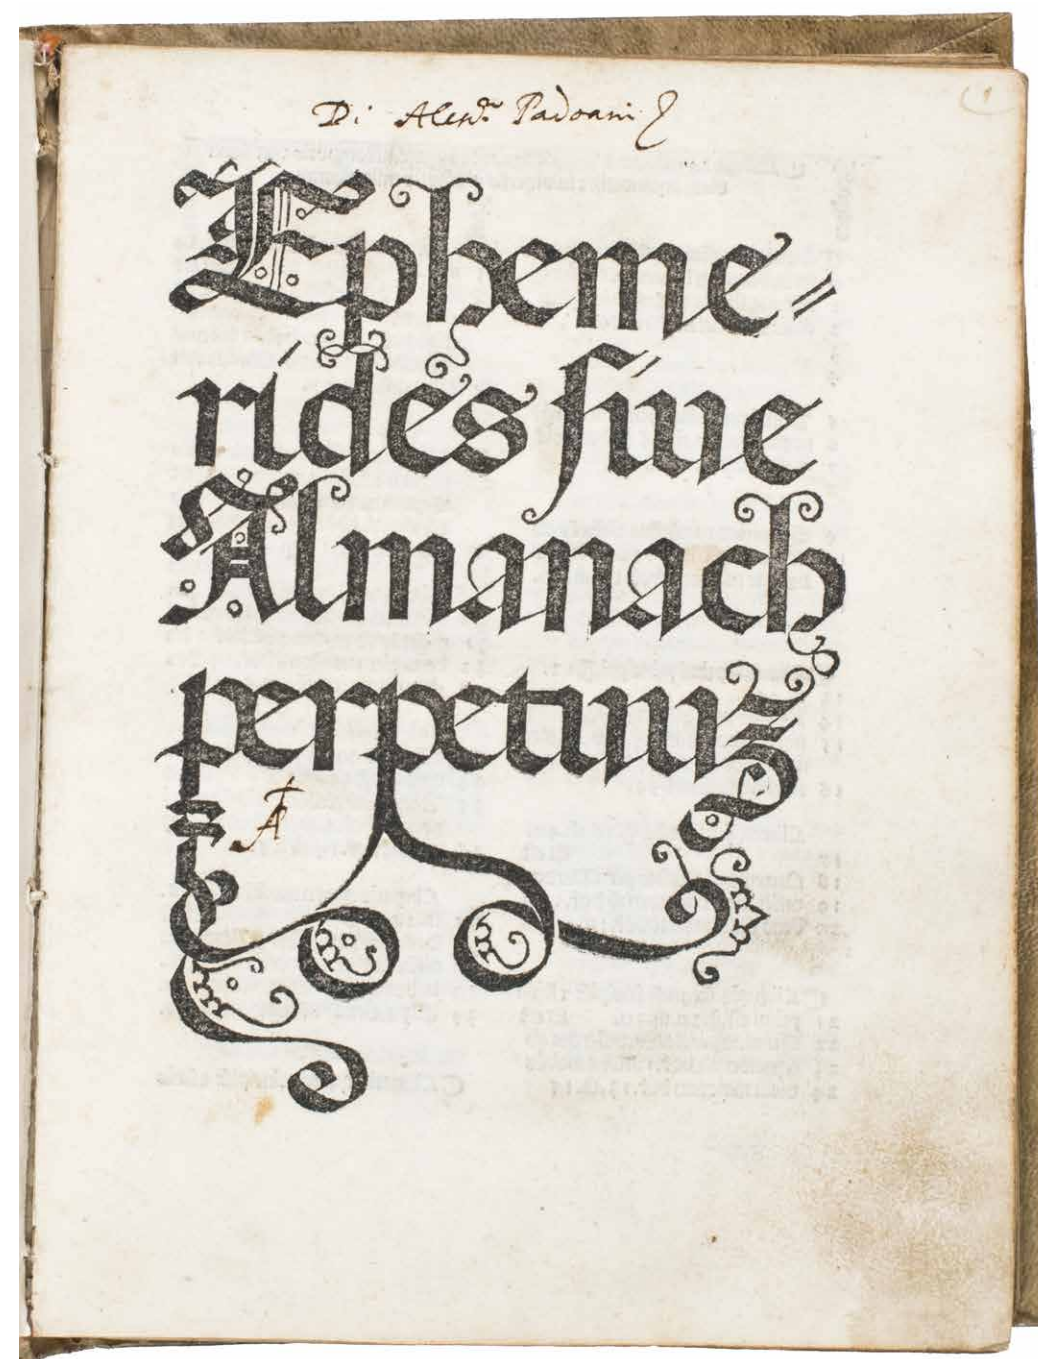 Di Aless.ro Padoani
1
Epheme=
rides ſiue
Almanach
perpetuuʒ
A